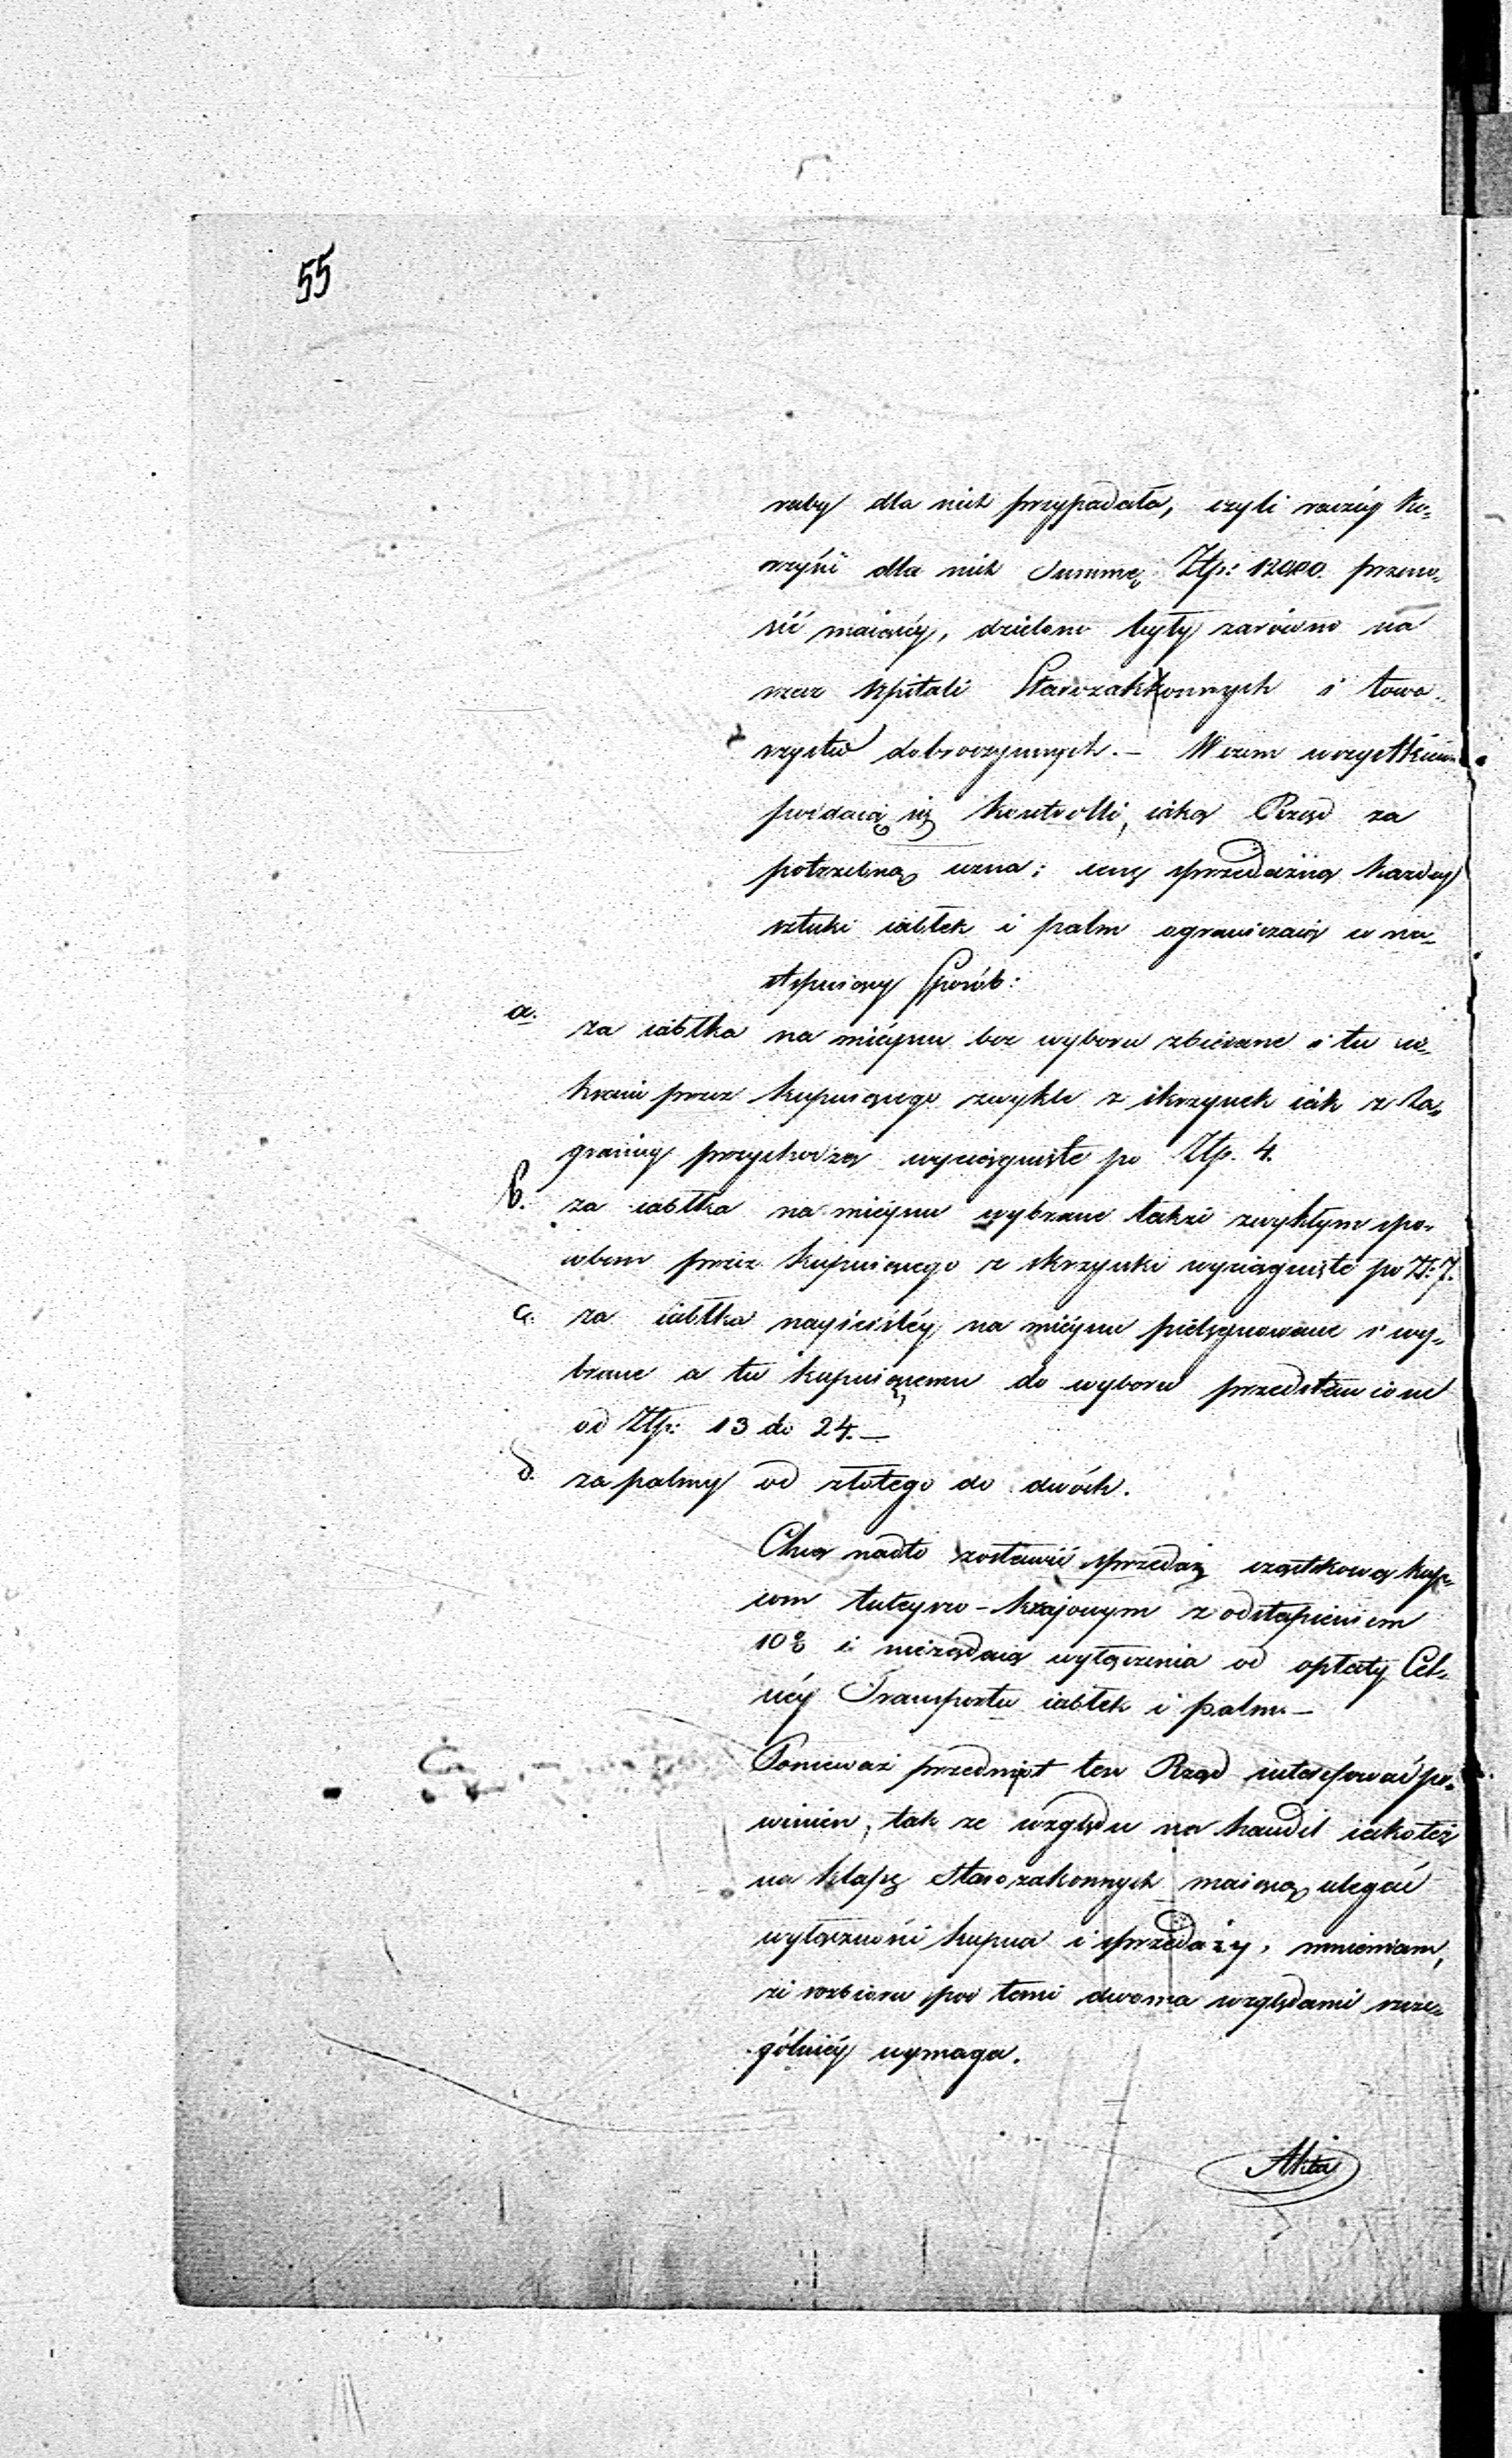 55
raby dla nich przypadała, czyli raczéy ko-
rzyści dla nich Summę Ztp: 12000. przeno-
sić maiącéy, dzielone były zarówno na
rzecz szpitali Starozakonnych i towa-
rzystw dobroczynnych. — W czem wszystkiem
poddaią się kontrolli, iaką Rząd za
potrzebną uzna; cenę sprzedażną każdéy
sztuki iabłek i palm ograniczaią w na-
stępuiący Sposób:
a. za iabłka na mieyscu bez wyboru zbierane i tu w
kraiu przez kupuiącego zwykle z skrzynek iak z Za-
granicy przychodzą wyciągnięte po Ztp. 4.
b. za iabłka na mieyscu wybrane także zwykłym spo-
sobem przez kupuiącego z skrzynki wyciągnięte po Zł: 7.
c. za iabłka nayściśléy na mieyscu pielęgnowane i wy-
brane a tu kupuiącemu do wyboru przedstawione
od Ztp: 13 do 24. —
d. za palmy od złotego do dwóch.
Chcą nadto zostawić sprzedaż cząstkową kup-
com tuteyszo-krajowym z odstąpieniem
10% i nieżądaią wyłączenia od opłaty Cel-
néy Transportu iabłek i palm. —
Ponieważ przedmiot ten Rząd interesować po-
winien, tak ze względu na handel iakoteż
na klassę Starozakonnych maiącą ulegać
wyłączności kupna i sprzedaży, mniemam,
że rozbioru pod temi dwoma względami szcze-
gólniéy wymaga.